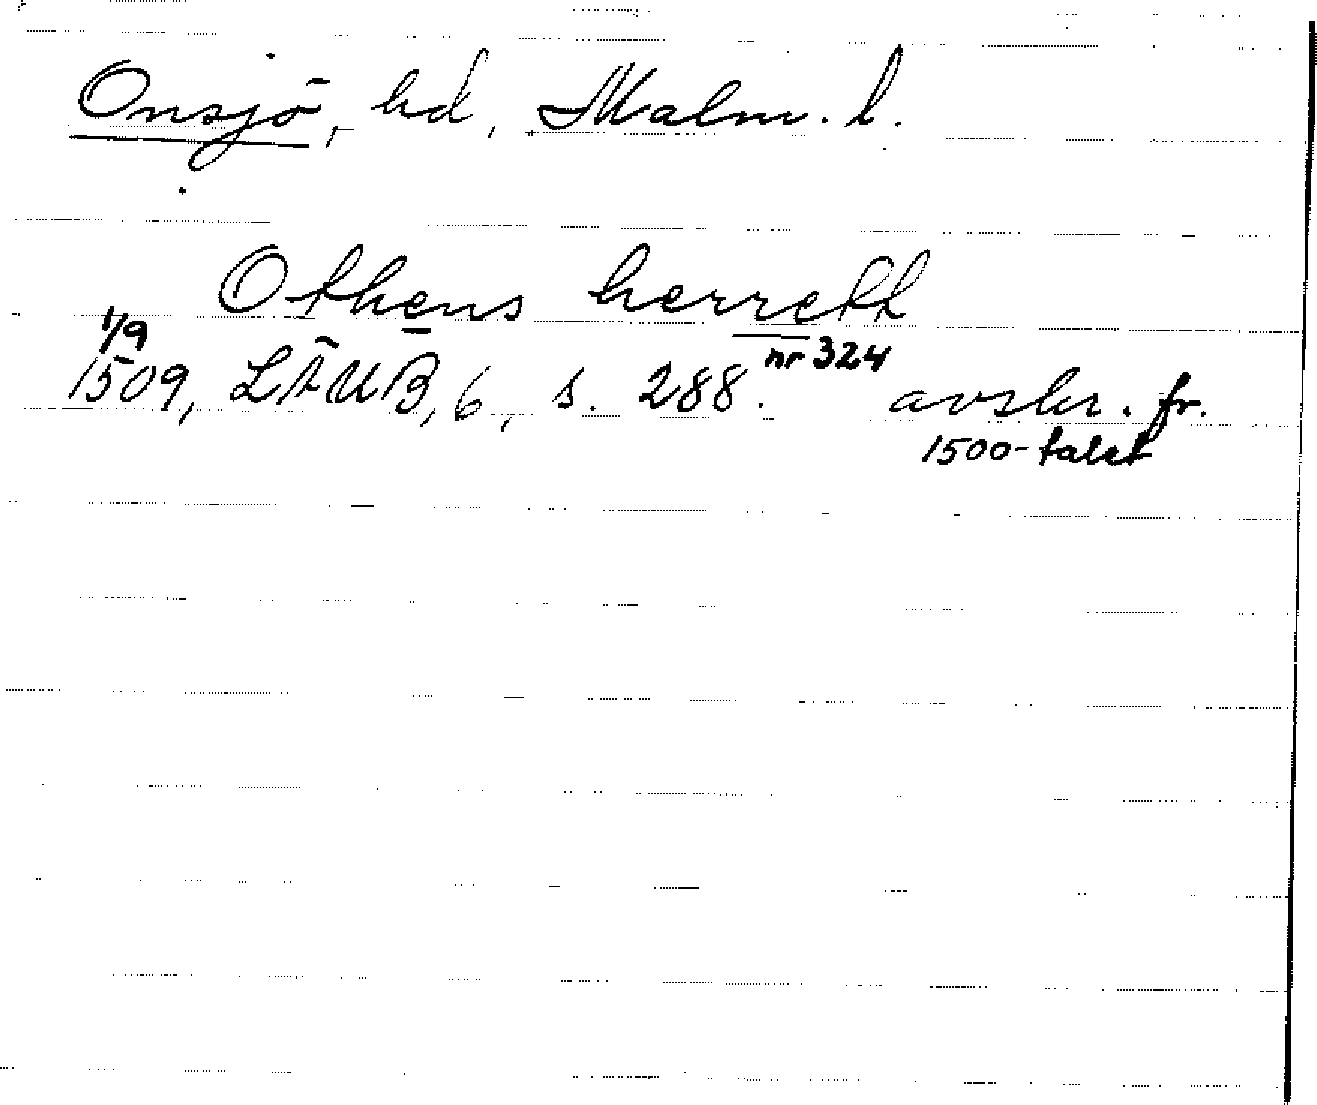 Onsjö, hd, Malm. l.
Othens herrett
1/9
1509, LÄUB, 6, s. 288. nr 324 avskr. fr.
1500-talet